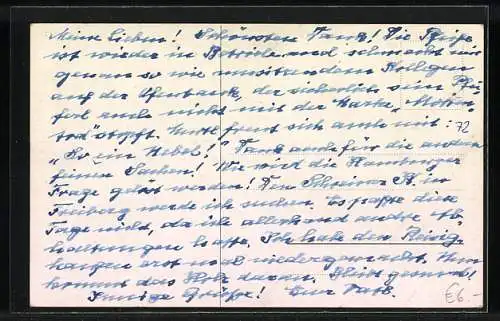 Meine Lieben! Schönsten Dank! Die Pfeife
ist wieder in Betrieb und schmeckt mir
genau so wie unsitzendem Kollegen
auf der Ofenbank, der sicherlich sein Pfei-
ferl auch nicht mit der Marke „Motten-
tod" stopft. freut sich auch mit:
„So ein Hebel!" Dank auch für die andern
feinen Sachen! Wie wird die Hamburger
Frage gelöst werden! Den Schreiner St. in
Freiberg werde ich suchen. Es paßte diese
Tage nicht, da ich allerhand andre Ab-
haltungen hatte. Ich habe den Reisig-
haufen erst mal niedergemacht. Nun
kommt das Holz daran. Bleibt gesund!
Innige Grüße! Euer Vater.
72
£6.-